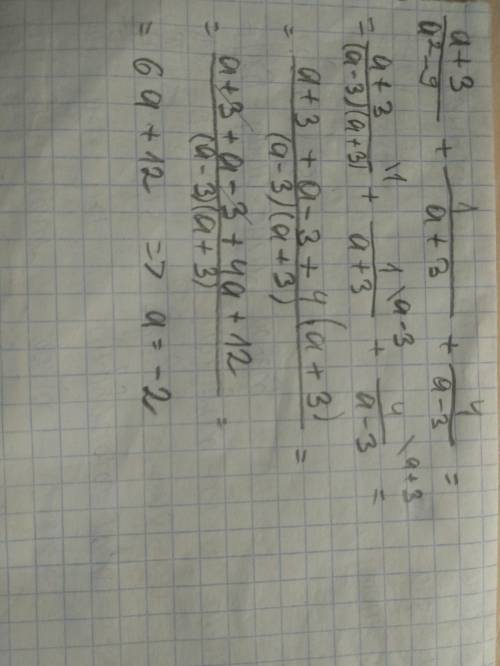 (a+3)/(a²-9) + 1/(a+3) + 4/(a-3) =
= (a+3)/((a-3)(a+3)) \1 + 1/(a+3) \a-3 + 4/(a-3) \a+3 =
= (a+3+a-3+4(a+3))/((a-3)(a+3)) =
= (a+3+a-3+4a+12)/((a-3)(a+3)) =
= 6a+12 => a=-2